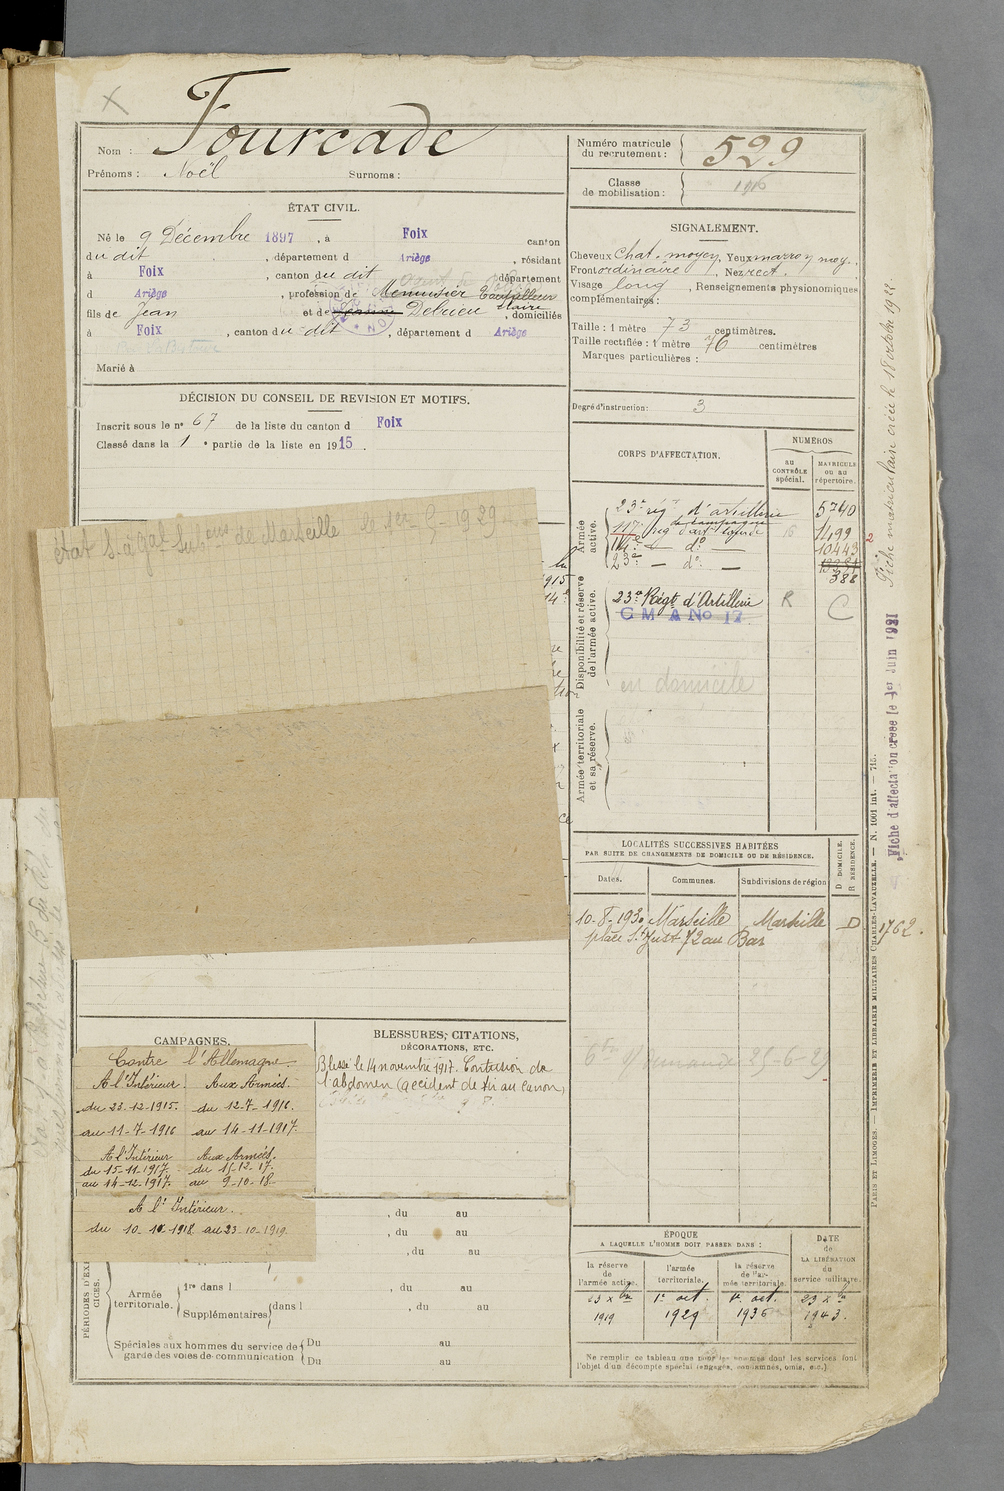 Nom : Fourcade
Prénoms : Noël Surnoms :
ÉTAT CIVIL.
Né le 9 Décembre 1897, à Foix canton
du dit, département d Ariège, résidant
à Foix, canton du dit département
d Ariège, profession de Menuisier
fils de Jean et de Delrieu Claire, domiciliés
à Foix, canton du dit, département d Ariège
Marié à
DÉCISION DU CONSEIL DE REVISION ET MOTIFS.
Inscrit sous le n° 67 de la liste du canton d Foix
Classé dans la 1e partie de la liste en 1915.
état S. à Gal Subons de Marseille le 1er-5-1929
CAMPAGNES.
Contre l'Allemagne
A l'Intérieur. Aux Armées.
du 23-12-1915. du 12-7-1916.
au 11-7-1916 au 14-11-1917.
A l'Intérieur Aux Armées.
du 15-11-1917. du 15-12-17.
au 14-12-1917. au 9-10-18
A l'Intérieur.
du 10-10-1918 au 23-10-1919.
BLESSURES, CITATIONS,
DÉCORATIONS, ETC.
Blessé le 14 novembre 1917. Contusion de
l'abdomen (accident de tir au canon)
, du au
, du au
, du au
PÉRIODES D'EXERCICES.
Armée territoriale.
1re dans l , du au
Supplémentaires dans l , du au
Spéciales aux hommes du service de garde des voies de communication
Du au
Du au
Numéro matricule du recrutement : 529
Classe de mobilisation : 1916
SIGNALEMENT.
Cheveux Chat. moyen, Yeux marron moy.
Front ordinaire, Nez rect.
Visage long, Renseignements physionomiques
complémentaires :
Taille : 1 mètre 73 centimètres.
Taille rectifiée : 1 mètre 76 centimètres
Marques particulières :
Degré d'instruction : 3
CORPS D'AFFECTATION.
NUMÉROS
au CONTRÔLE spécial.
MATRICULE ou au répertoire.
Armée active.
23e rég. d'artillerie de campagne 5740
117e rég. d'art. lourde 16 1499
114e — do — 10443
23e — do — 388
Disponibilité et réserve de l'armée active.
23e Régt d'Artillerie R C
C M A No 17
en domicile
Armée territoriale et sa réserve.
LOCALITÉS SUCCESSIVES HABITÉES
PAR SUITE DE CHANGEMENTS DE DOMICILE OU DE RÉSIDENCE.
D DOMICILE. R RÉSIDENCE.
Dates. Communes. Subdivisions de région
10-8-1930 Marseille Marseille D 1762.
place St Just 72 au Bar
25-6-29
ÉPOQUE
A LAQUELLE L'HOMME DOIT PASSER DANS :
DATE de LA LIBÉRATION du service militaire.
la réserve de l'armée active.
l'armée territoriale.
la réserve de l'armée territoriale.
23 Xbre 1919
1er oct. 1929
1er oct. 1936
23 Xbre 1943.
Ne remplir ce tableau que pour les hommes dont les services font
l'objet d'un décompte spécial (engagés, condamnés, omis, etc.)
Fiche matriculaire créée le 18 octobre 1922
Fiche d'affectation créée le 1er Juin 1921
PARIS ET LIMOGES. — IMPRIMERIE ET LIBRAIRIE MILITAIRES CHARLES-LAVAUZELLE. — N. 1001 int. — 715.